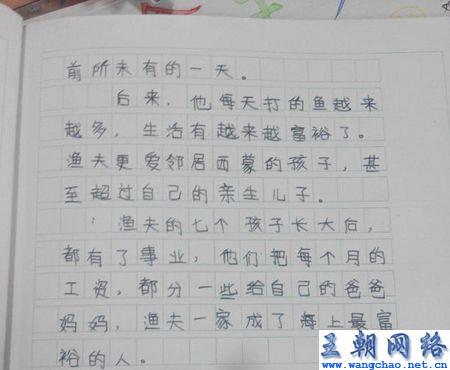 前所未有的一天。
后来，他每天打的鱼越来
越多，生活有越来越富裕了。
渔夫更爱邻居西蒙的孩子，甚
至超过自己的亲生儿子。
渔夫的七个孩子长大后，
都有了事业，他们把每个月的
工资，都分一些给自己的爸爸
妈妈，渔夫一家成了海上最富
裕的人。
王朝网络
www.wangchao.net.cn